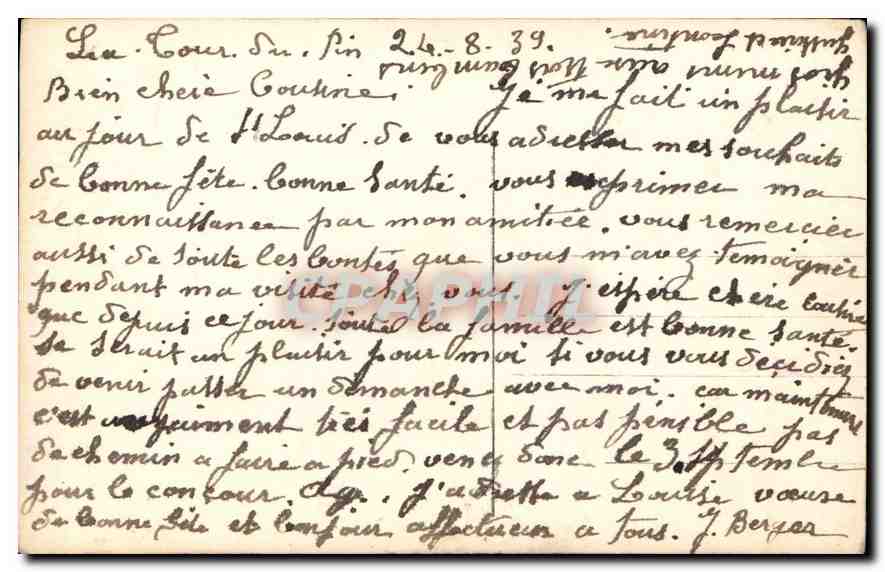 La Tour du Pin 24-8-39.
Bien chère Cousine. Je me fait un plaisir
au jour de St Louis de vous adresser mes souhaits
de bonne fête. bonne santé. vous exprimer ma
reconnaissance par mon amitiée. vous remercier
aussi de toute les bontés que vous m'avez temoigner
pendant ma visite chez vous. J'espère chère cousine
que depuis ce jour toute la famille est bonne santé.
se serait un plaisir pour moi si vous vous decidiez
de venir passer un dimanche avec moi. car maintenant
c'est vraiment tres facile et pas pensible pas
de chemin a faire a pied. venez donc le 3 septembre
pour le concour. Ag. J'adresse a Louise voeuse
de bonne fete et bonjour affectueux a tous. J. Berger
gros mimi a
Justine et Leontine.
CPAPHIL